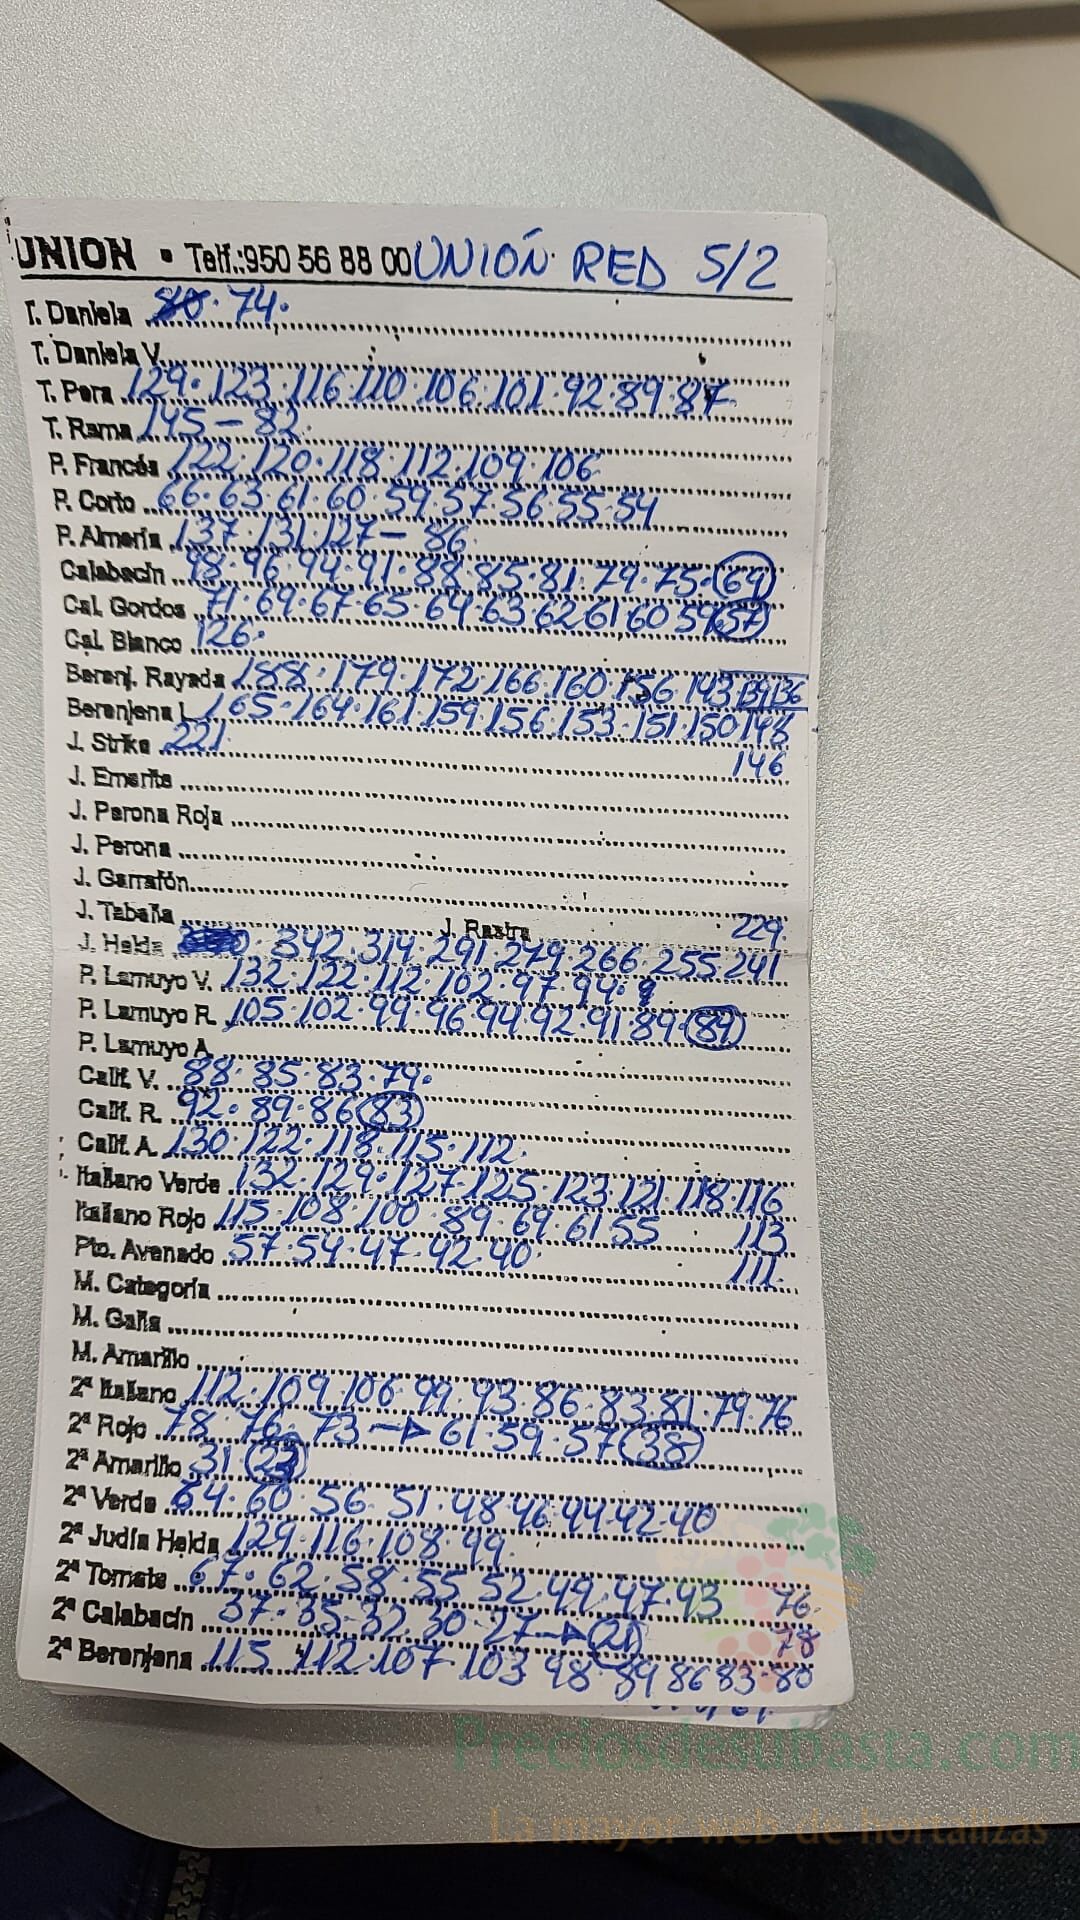 UNION • Telf.:950 56 88 00 UNIÓN RED 5/2
T. Daniela 74.
T. Daniela V.
T. Pera 129.123.116.110.106.101.92.89.87
T. Rama 145-82.
P. Francés 122.120.118.112.109.106
P. Corto 66.63.61.60.59.57.56.55.54
P. Almería 137.131.127-86
Calabacín 98.96.94.91.88.85.81.79.75.(69)
Cal. Gordos 71.69.67.65.64.63.62.61.60 59(57)
Cal. Blanco 126.
Berenj. Rayada 188.179.172.166.160.156 143 139 136
Berenjena L 165.164.161.159.156.153.151.150 148
J. Strike 221. 146
J. Emerite
J. Perona Roja
J. Perona
J. Garrafón
J. Tabella J. Rastra 229.
J. Helda 342.314.291.279.266.255.241
P. Lamuyo V. 132.122.112.102.97.94.
P. Lamuyo R. 105.102.99.96.94.92.91.89.(84)
P. Lamuyo A.
Calif. V. 88.85.83.79.
Calif. R. 92.89.86(83)
Calif. A. 130.122.118.115.112.
Italiano Verde 132.129.127.125.123.121.118.116
Italiano Rojo 115.108.100.89.69.61.55 113
Pto. Asvenado 57.54.47.42.40 111.
M. Categoría
M. Galia
M. Amarillo
2ª Italiano 112.109.106.99.93.86.83.81.79.76
2ª Rojo 78.76.73→61.59.57(38)
2ª Amarillo 31
2ª Verde 64.60.56.51.48.46.44.42.40
2ª Judía Helda 129.116.108.99
2ª Tomate 67.62.58.55 52.49.47.43 76.
2ª Calabacín 37.35.32.30.27→(21) 78
2ª Berenjena 115 112.107.103 98.89 86 83.80
Preciosdesubasta.com
La mayor web de hortalizas